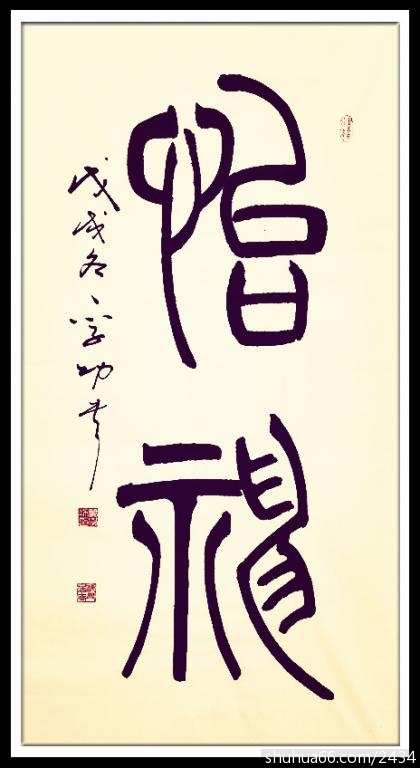 怡神
戊戌冬学功书
shuhua66.com/2434